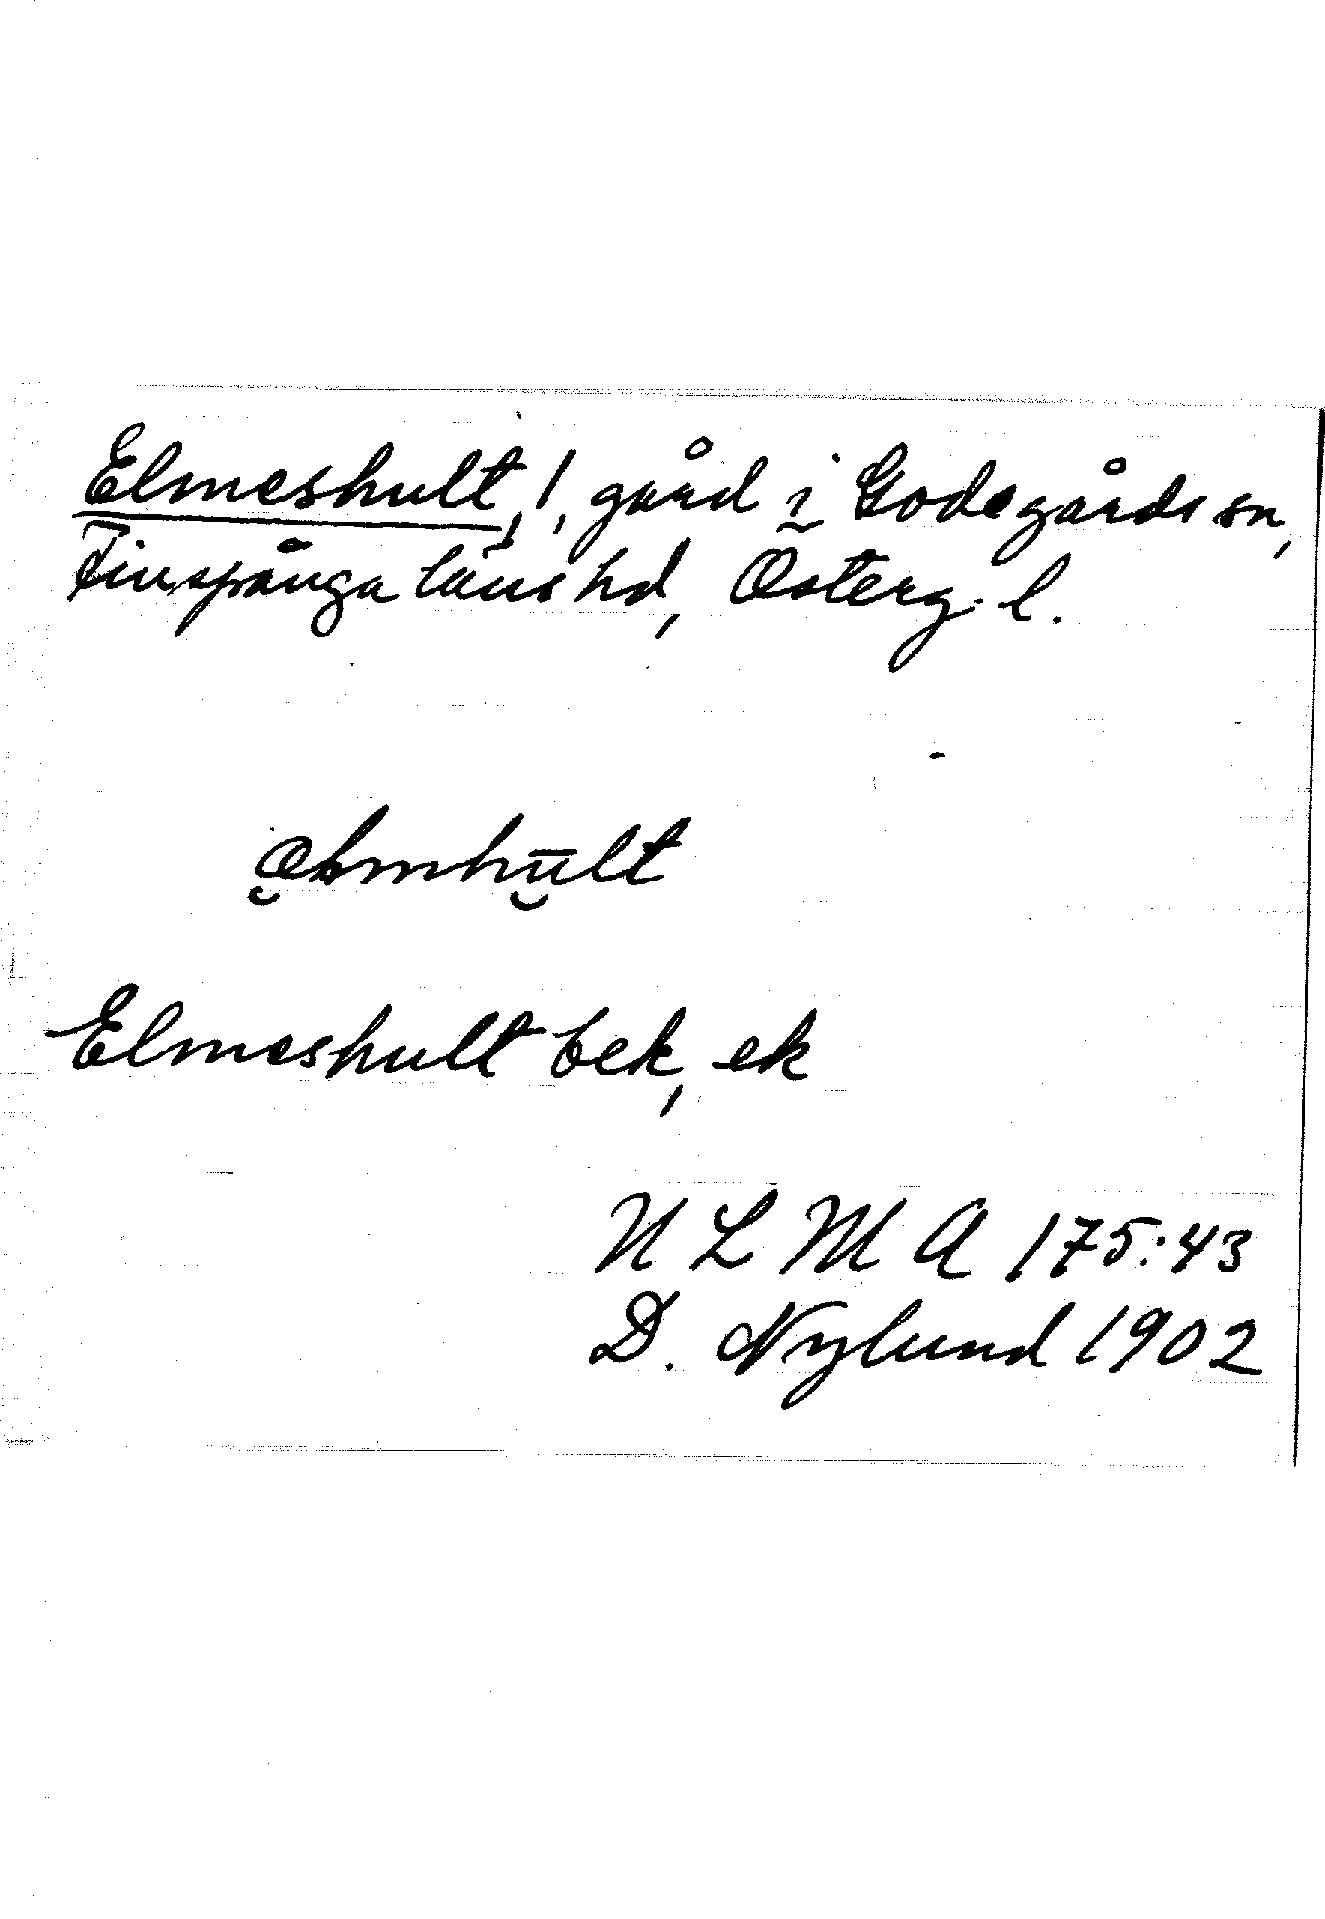 Elmeshult, 1, gård i Godegårds sn,
Finspånga läns hd, Österg. l.
Elmeshult bek, ek
ULMA 175:43
D. Nylund 1902